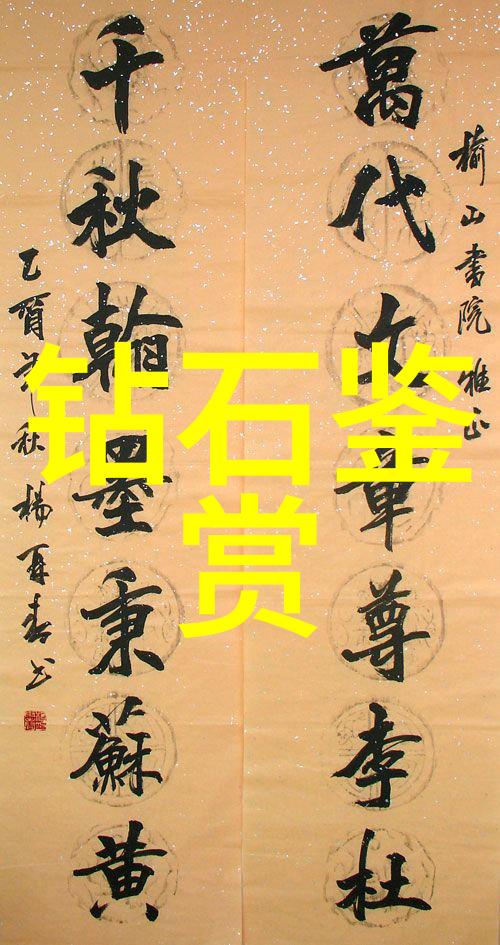 钻石鉴
赏
榆山書院 雅正
萬代文章尊李杜
千秋翰墨秉蘇黄
乙酉年秋 楊再春书